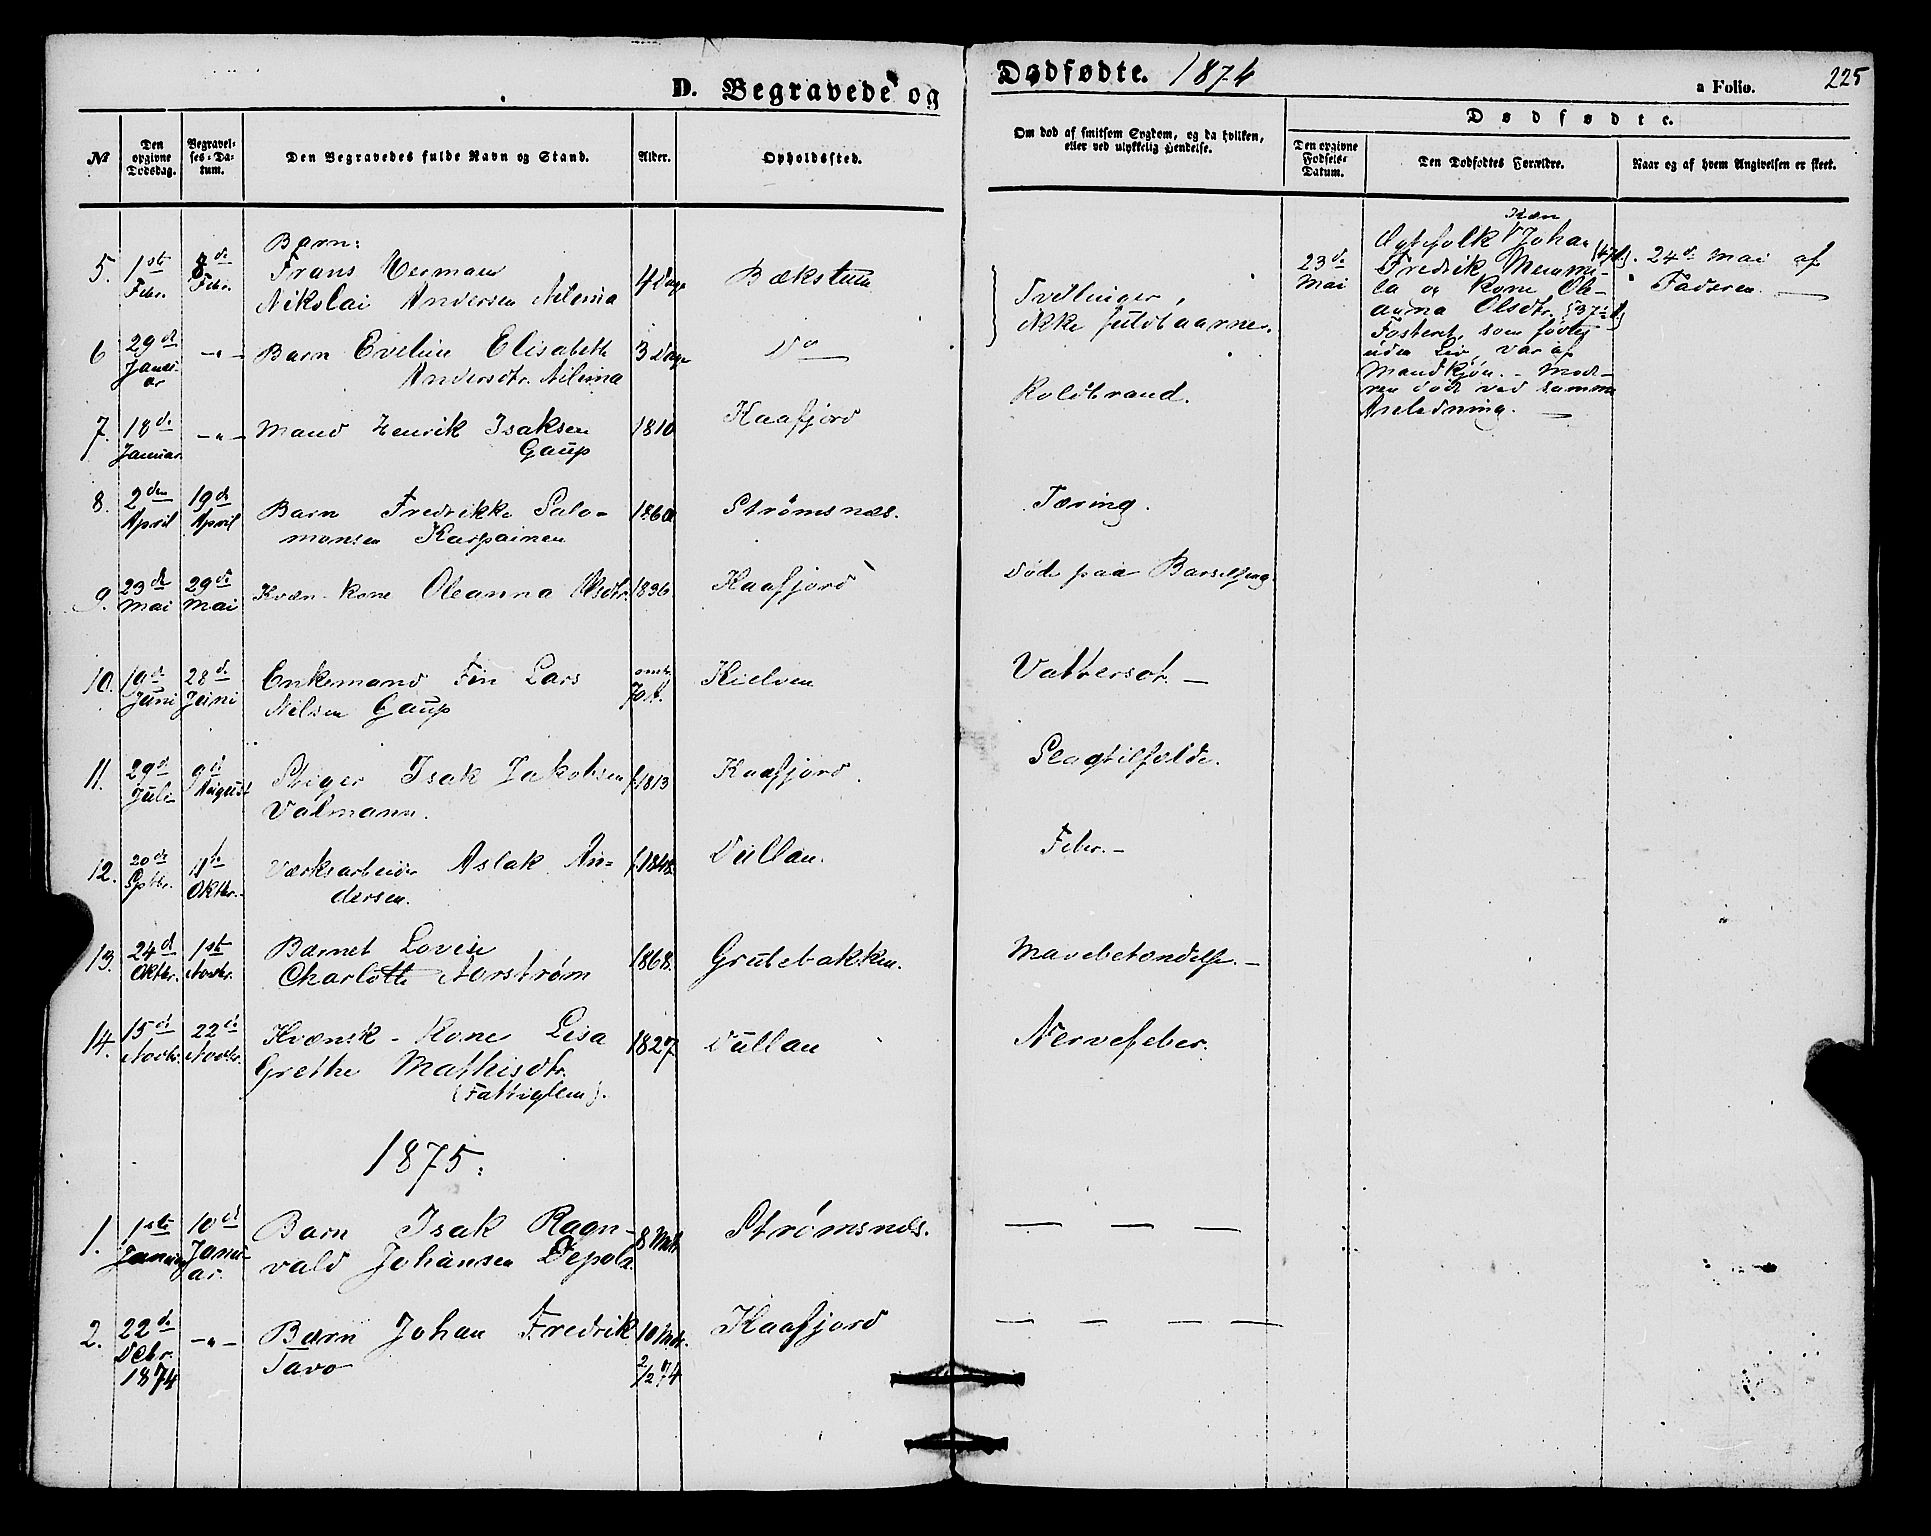 D. Begravede og Dødfødte. 1874
a Folio. 225
№
Den opgivne Dødsdag.
Begravelses-Datum.
Den Begravedes fulde Navn og Stand.
Alder.
Opholdssted.
Om død af smitsom Sygdom, og da hvilken, eller ved ulykkelig Hendelse.
Dødfødte.
Den opgivne Fødsels-Datum.
Den Dødfødtes Forældre.
Naar og af hvem Angivelsen er skeet.
5. 1ste Febr. 8de Febr. Barn:
Frans Herman
Nikolai Andersen Nilima 4 Dage Bækstuen
Tvillinger,
ikke fuldbaarne.
6 29de Januar -"- Barn Eveline Elisabeth
Andersdtr. Nilima 3 Dage Do
7. 18de Januar -"- Mand Henrik Isaksen
Gaup 1810 Kaafjord Koldbrand.
8. 2den April 19de April Barn Fredrikke Salo-
monsen Karpainen 1860 Strømsnæs. Tæring.
9. 23de Mai 29de Mai Kvæn-Kone Oleanna Olsdtr. 1836 Kaafjord Død paa Barselseng.
10. 19de Juni 28de Juni Enkemand Fin Lars
Nilsen Gaup omtr. 70 A. Kielven Vattersot. —
11. 29de Juli 9de August Stiger Isak Jakobsen
Valmann. f. 1813 Kaafjord. Slagtilfælde.
12. 20de Sptbr. 11te Oktbr. Værksarbeider Aslak An-
dersen. f. 1848. Dullau. Feber. —
13. 24de Oktbr. 1ste Novbr. Barnet Lovise
Charlotte Norstrøm 1868. Grubebakken. Mavebetændelse. —
14. 15de Novbr. 22de Novbr. Kvænsk-Kone Lisa
Grethe Mathisdtr.
(Fattiglem). 1827 Dullau Nervefeber.
23de Mai
Kvæn
Ægtefolk Johan
Fredrik Memmi-
la og Kone Ole-
anna Olsdtr.
Fosteret, som fødtes
uden Liv, var af
Mandkjøn. - Mod-
ren døde ved samme
Anledning. —
24de Mai af
Faderen. —
1875.
1. 1ste Januar 10de Januar. Barn Isak Ragn-
vald Johansen Depola. 8 Mdr. Strømsnæs. — — —
2. 22de Debr. 1874 -"- Barn Johan Fredrik
Tavo 10 Mdr. 2/2 74 Kaafjord — — — —